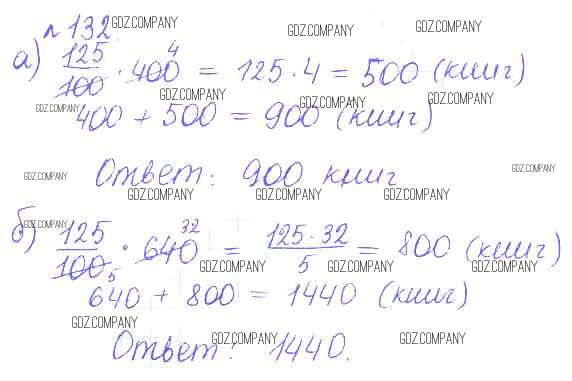 №132. GDZ.COMPANY GDZ.COMPANY GDZ.COMPANY
а) 125/100 · 400 4 = 125 · 4 = 500 (книг)
GDZ.COMPANY GDZ.COMPANY GDZ.COMPANY GDZ.COMPANY
400 + 500 = 900 (книг)
GDZ.COMPANY GDZ.COMPANY
Ответ: 900 книг
GDZ.COMPANY GDZ.COMPANY GDZ.COMPANY
GDZ.COMPANY
б) 125/100 5 · 640 32 = 125 · 32/5 = 800 (книг)
GDZ.COMPANY GDZ.COMPANY GDZ.COMPANY
640 + 800 = 1440 (книг)
GDZ.COMPANY
GDZ.COMPANY GDZ.COMPANY
Ответ: 1440.